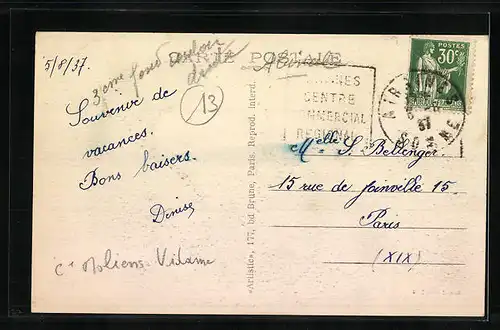 5/8/37.
3eme
CARTE POSTALE
13
Souvenir de
vacances.
Bons baisers.
Denise
Cn Moliens-Vidame
«Artistic», 177, bd Brune, Paris. Reprod. interd.
POSTES
30c
CENTRE
COMMERCIAL
REGIONAL
37
Melle S. Bellenger.
15 rue de Joinville 15.
Paris
(XIX)